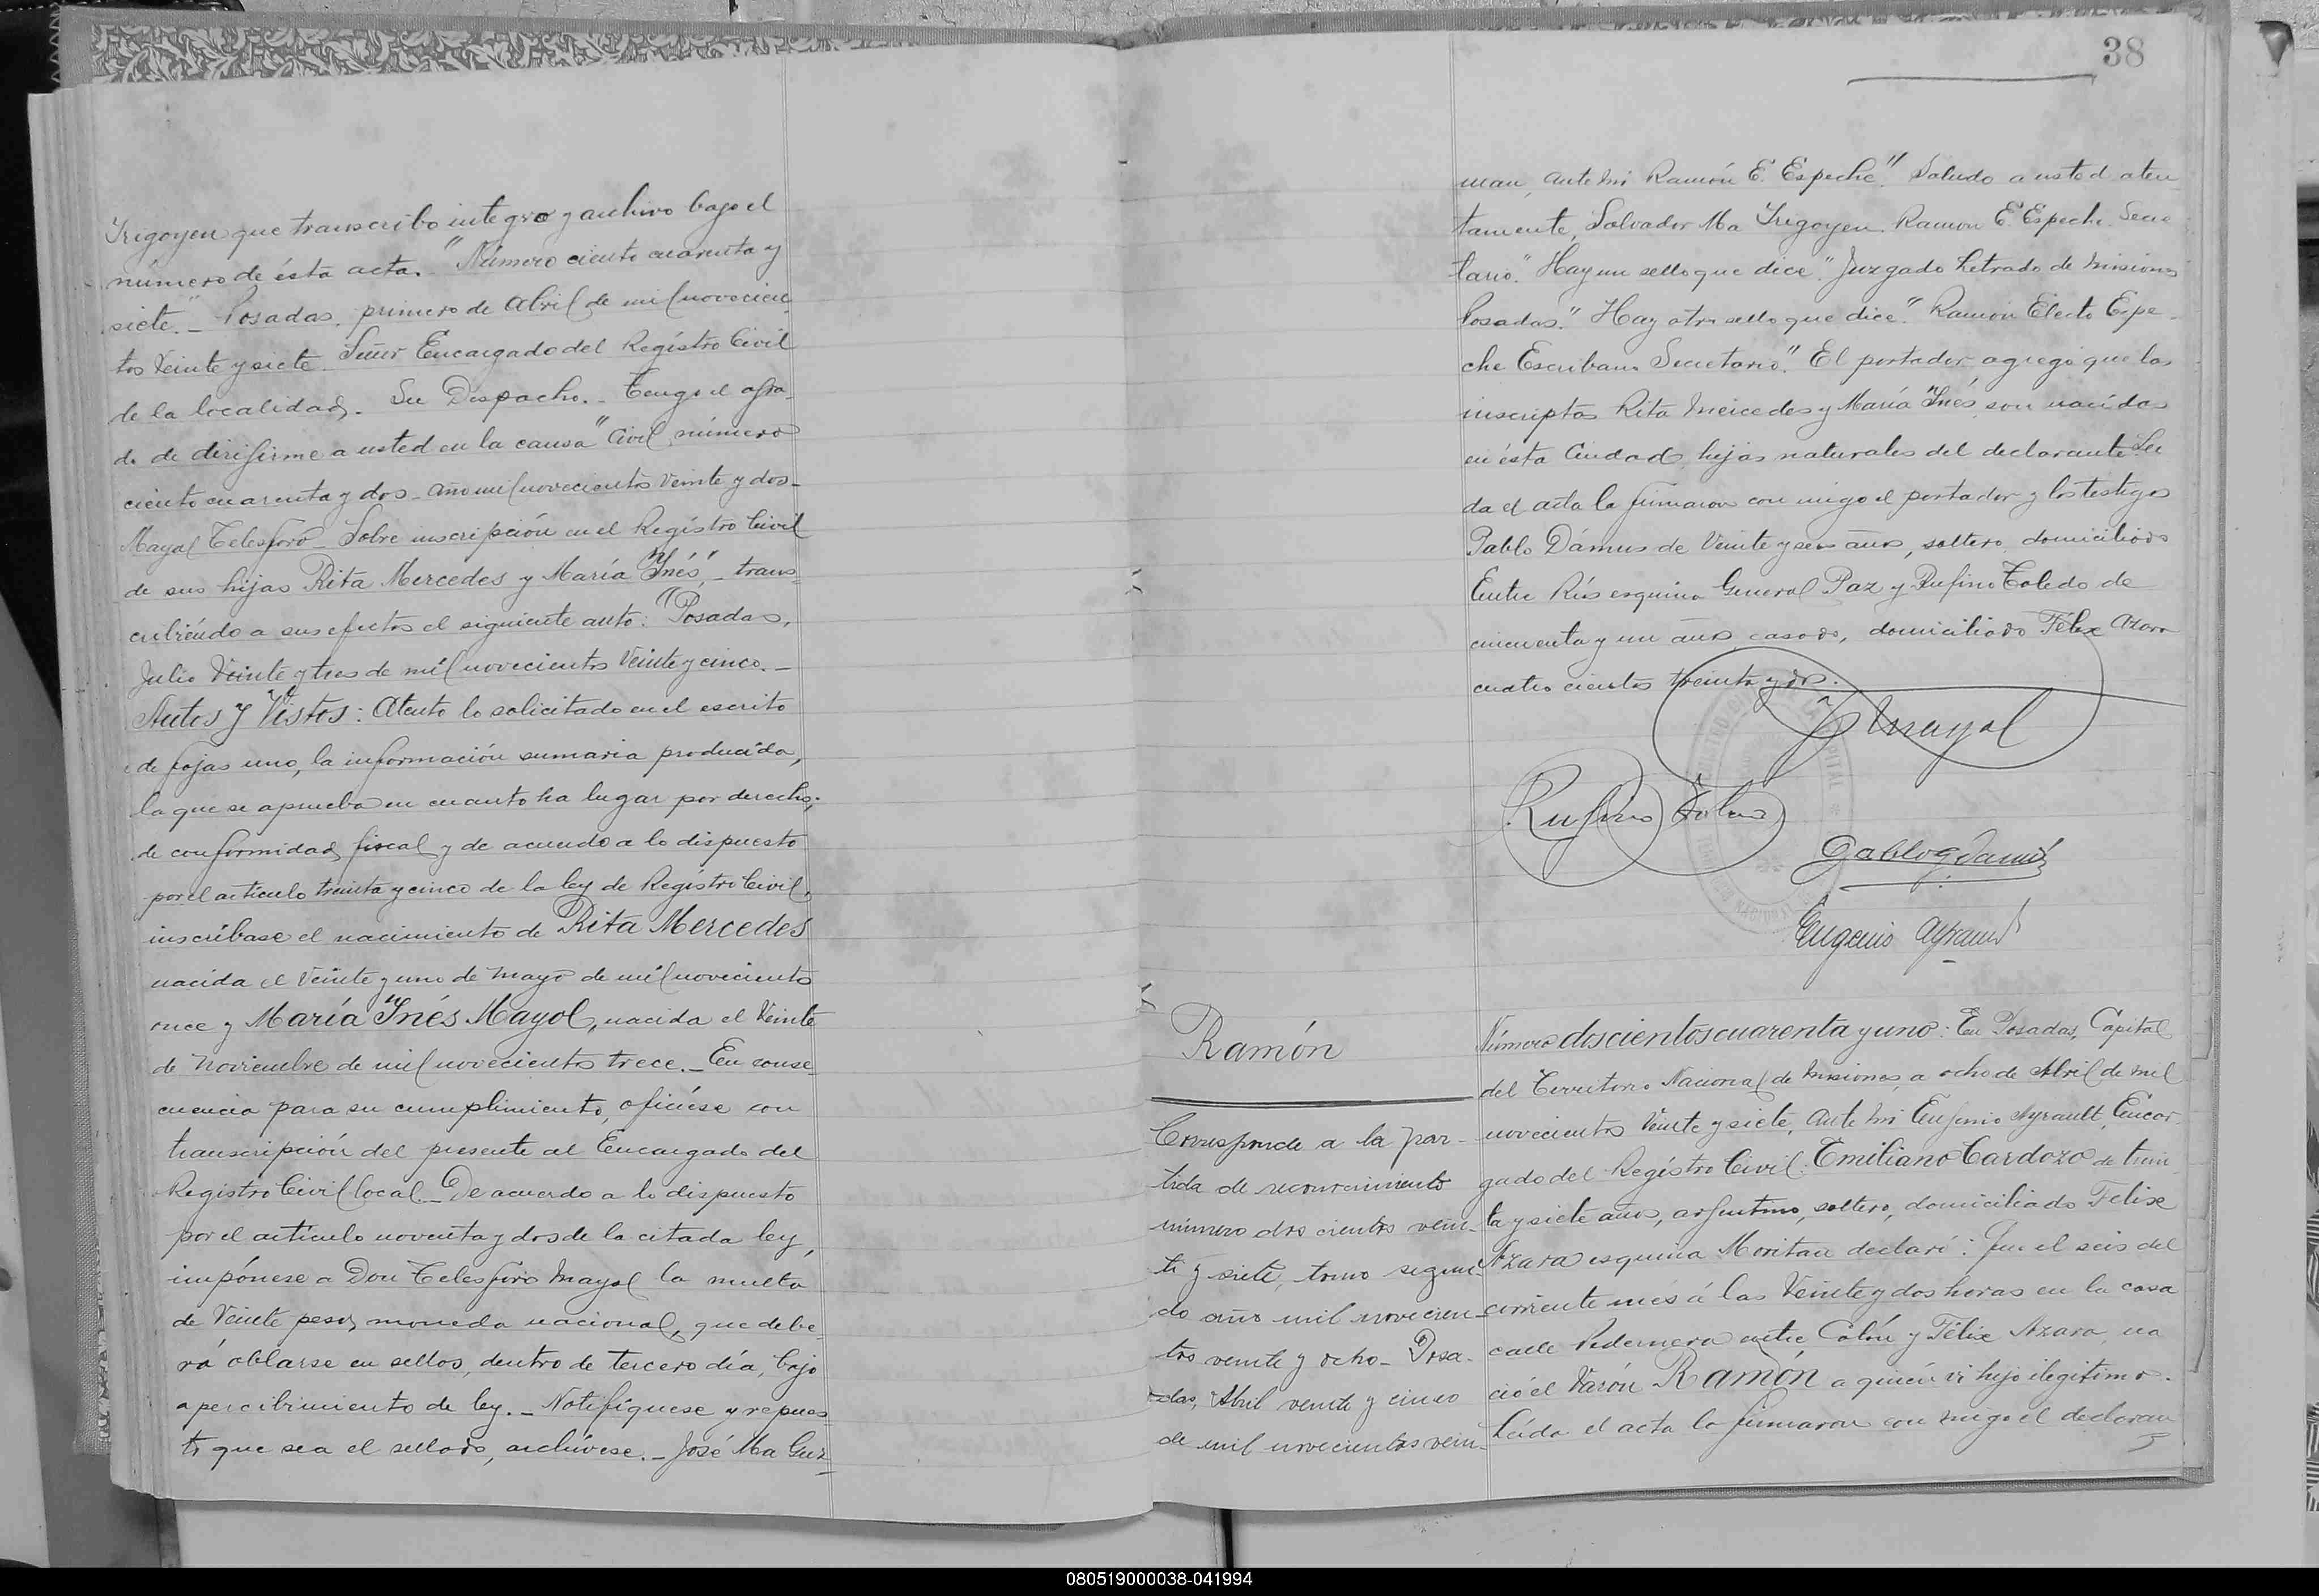 Yrigoyen que transcribo integro y archivo bajo el
número de ésta acta._ "Número ciento cuarenta y
siete."_ Posadas, primero de Abril de mil novecien-
tos Veinte y siete. Señor Encargado del Registro Civil
de la localidad._ Su Despacho._ Tengo el agra-
do de dirigirme a usted en la causa "Civil número
ciento cuarenta y dos_ año mil novecientos Veinte y dos_
Mayol Telesforo_ Sobre inscripción en el Registro Civil
de sus hijas Rita Mercedes y María "Ynés",_ trans-
cribiéndo a sus efectos el siguiente auto: "Posadas,
Julio Veinte y tres de mil novecientos Veinte y cinco._
Autos y Vistos: Atento lo solicitado en el escrito
de fojas uno, la información sumaria producida,
la que se aprueba en cuanto ha lugar por derecho;
de conformidad fiscal y de acuerdo a lo dispuesto
por el artículo treinta y cinco de la ley de Registro Civil,
inscríbase el nacimiento de Rita Mercedes
nacida el Veinte y uno de Mayo de mil novecientos
once y María "Ynés Mayol, nacida el Veinte
de Noviembre de mil novecientos trece._ En conse-
cuencia para su cumplimiento, ofíciese con
transcripción del presente al Encargado del
Registro Civil local._ De acuerdo a lo dispuesto
por el artículo noventa y dos de la citada ley,
impónese a Don Telesforo Mayol la multa
de Veinte pesos moneda nacional, que debe-
rá oblarse en sellos, dentro de tercero día, bajo
apercibimiento de ley._ Notifíquese y repues-
to que sea el sellado, archívese._ José Ma Guz-
38
man, Ante mi Ramón E. Espeche." Saludo a usted aten
tamente, Salvador Ma Yrigoyen. Ramon E. Espeche. Secre
tario." Hay un sello que dice." Juzgado Letrado de Misiones
Posadas." Hay otro sello que dice." Ramón Electo Espe-
che Escribano Secretario." El portador agregó que las
inscriptas Rita Mercedes y María "Ynés, son nacidas
en ésta Ciudad, hijas naturales del declarante. Lei
da el acta la firmaron con migo el portador y los testigos
Pablo Dámus de Veinte y seis años, soltero, domiciliado
Entre Ríos esquina General Paz y Rufino Toledo de
cincuenta y un años, casado, domiciliado Félix Azara
cuatro cientos treinta y dos.
T Mayol
Rufino Toledo
Pablo G Damus
Eugenio Ayrault
Ramón
Corresponde a la par-
tida de reconocimiento
número dos cientos vein-
te y siete, tomo segun-
do año mil novecien-
tos veinte y ocho- Posa-
das, Abril veinte y cinco
de mil novecientos vein-
Número doscientos cuarenta y uno: En Posadas, Capital
del Territorio Nacional de Misiones, a ocho de Abril de mil
novecientos Veinte y siete, Ante mi Eugenio Ayrault, Encar-
gado del Registro Civil: Emiliano Cardozo de trein
ta y siete años, argentino, soltero, domiciliado Felix
Azara esquina Moritan declaró: Que el seis del
corriente mes á las Veinte y dos horas en la casa
calle Pedernera entre Colón y Félix Azara, na
ció el Varón Ramón a quién vi hijo ilegitimo.
Leída el acta la firmaron con migo el declaran
080519000038-041994